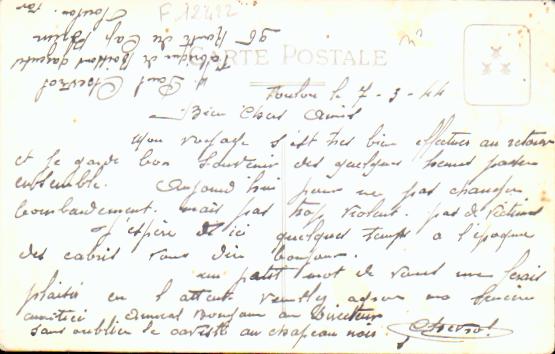 F 12412
CARTE POSTALE
Toulon le 7-3-44
Bien Chers Amis
Mon voyage s'est tres bien effectuer au retour
et je garde bon souvenir des quelques heures passer
ensemble. Aujourd'hui pour ne pas changer
bombardement. mais pas trop violent. pas de victimes
J'espère de ici quelques temps a l'époque
des cabris vous dire bonjour.
un petit mot de vous me ferais
plaisir en l'attente veuillez agréer ma sincère
amitier au Directeur
sans oublier le au chapeau noir.
M. Paul
Fabrique de Boissons
36 Route du Cap Brun
Toulon. Var